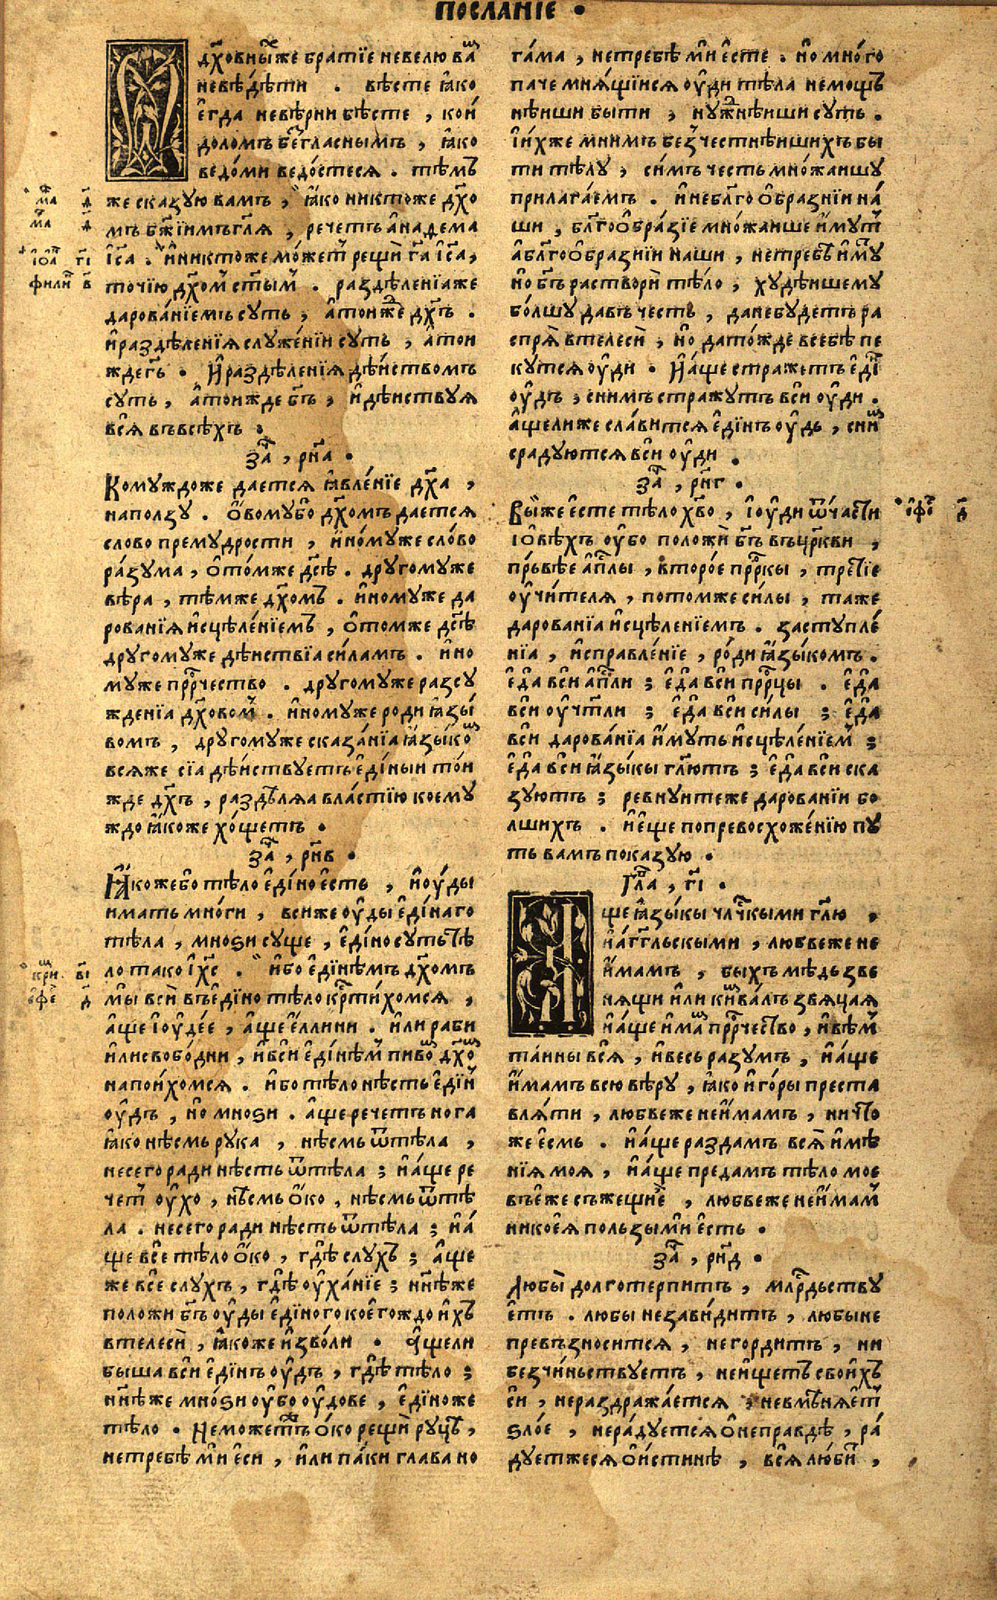 ПОСЛАНІЕ •
О дх҃овныⷯже братїе невелю ваⷨ
невѣдѣти . вѣсте ꙗко
егда невѣрни бѣсте , кои
доломъ безгласнымъ , ꙗко
ведоми ведостеся . тѣмъ
же сказую вамъ , ꙗко никтоже дх҃о
мъ бж҃іимъ гл҃я , речетъ анаѳема
іс҃а . никтоже можеⷮ рещи га҃ іс҃а,
точїю дх҃омⸯ ст҃ымⸯ . раздѣленїа же
дарованїемъ суть , атоиже дх҃ъ .
ираздѣленїя служенїи суть , атои
ждегь҃ . Ираздѣленїя дѣиствомъ
суть , атоижде бг҃ъ , идѣиствуя
вся въвсѣхъ .
заⷱ҇ , рн҃а •
Комуждоже дается ꙗвленїе дх҃а ,
наползу . Овомубо дх҃омъ дается
слово премудрости , иномуже слово
разума , отомже дс҃ѣ . другомуже
вѣра , тѣмже дх҃омъ . иномуже да
рованїя исцѣленїемъ , отомже дс҃ѣ
другомуже дѣиствїа силамъ . ино
муже прⷪ҇рчество . другомуже разсу
жденїа дх҃овомⸯ . иномуже роди ꙗзы
комъ , другомуже сказанїа ꙗзыкоⷨ
всяже сїа дѣиствуетъ единыи тои
жде дх҃ъ , раздѣляа властїю коему
ждо ꙗкоже хощетъ •
заⷱ҇ , рн҃в •
Ꙗкожебо тѣло едїно есть , иоуды
имать многи , всиже оуды едїнаго
тѣла , мноѕи суще , едїно суть тѣ
ло тако і хс҃ . ибо едїнѣмъ дх҃омъ
мы вси въедїно тѣло крⷭ҇тихомся ,
аще іоудее , аще еллини . или раби
илисвободни , ивси едїнѣмⸯ пивоⷨ дх҃оⷨ
напоихомся . ибо тѣло нѣсть едїнⸯ
оудъ , но мноѕи . аще речетъ нога
ꙗко нѣсмь рука , нѣсмь ѿтѣла ,
несего ради нѣсть ѿтѣла ; иаще ре
четⸯ оухо , нѣсмь око , нѣсмь ѿтѣ
ла . несего ради нѣсть ѿтѣла ; иа
ще все тѣло око , гдѣ слухъ ; аще
же все слухъ , гдѣ оуханїе ; нн҃ѣже
положи бг҃ъ оуды едїного коегождо ихъ
втелеси , ꙗкоже изволи • Ащели
быша вси едїнъ оудъ , гдѣ тѣло ;
нн҃ѣже мноѕи оубо оудове , едїноже
тѣло . Неможетъ око рещи руцѣ ,
нетребѣ ми еси , или паки глава но
гама , нетребѣ ми есте . но много
паче мнящїися оуди тѣла немощъ
нѣиши быти , нужнѣиши суть .
Іихже мнимъ безчестнѣишихъ бы
ти тѣлу , симъ честь множаишу
прилагаемъ . инеблг҃ообразнїи на
ши , блг҃ообразїе множаише имутⸯ
аблг҃ообразнїи наши , нетребѣ иму
но бг҃ъ раствори тѣло , худѣишему
болшу давъ честь , данебудетъ ра
спря втелеси , но датожде всебѣ пе
кутся оуди . Иаще стражетъ едїⷩ
оудъ , снимъ стражутъ вси оуди .
ащелиже славится едїнъ оудъ , снимⸯ
срадуются вси оуди .
заⷱ҇ , рн҃г •
Выже есте тѣло хв҃о , іоуди ѿчасти
Іовѣхъ оубо положи бг҃ъ въцр҃кви ,
прьвѣе ап҃лы , второе прⷪ҇ркы , третїе
оучителя , потомже силы , таже
дарованїа исцѣленїемъ . заступле
нїа , исправленїе , роди ꙗзыкомъ .
еда вси ап҃ли ; еда вси прⷪ҇рцы . еда
вси оучт҃ли ; еда вси силы ; еда
вси дарованїа имуть исцѣленїемⸯ ;
еда вси ꙗзыкы гл҃ютъ ; еда вси ска
зуютъ ; ревнуитеже дарованїи бо
лшихъ . иеще попревосхоженїю пу
ть вамъ показую •
Гла҃ , гі҃ •
Аще ꙗзыкы чл҃чкыми гл҃ю ,
иагг҃льскыми , любвеже не
имамъ , быхъ мѣдь зве
нящи или кимвалъ звяцая
иаще имаⷨ прⷪ҇рчество , ивѣмⸯ
таины вся , ивесь разумъ , иаще
имамъ всю вѣру , ꙗко игоры преста
вляти , любвеже неимамъ , ничто
же есмь . иаще раздамъ вся имѣ
нїя моя , иаще предамъ тѣло мое
въеже съжещи е , любвеже неимамⸯ
никоея ползы ми есть .
заⷱ҇ , рн҃д •
Любы долготерпитъ , млⷭ҇рдьству
етъ . любы незавидитъ , любы не
превъзносится , негордитъ , ни
безчиньствуетъ , неищетъ своихъ
си , нераздражается , невмѣняетⸯ
ѕлое , нерадуется онеправдѣ , ра
дуетжеся оистинѣ , вся любиⷮ ,